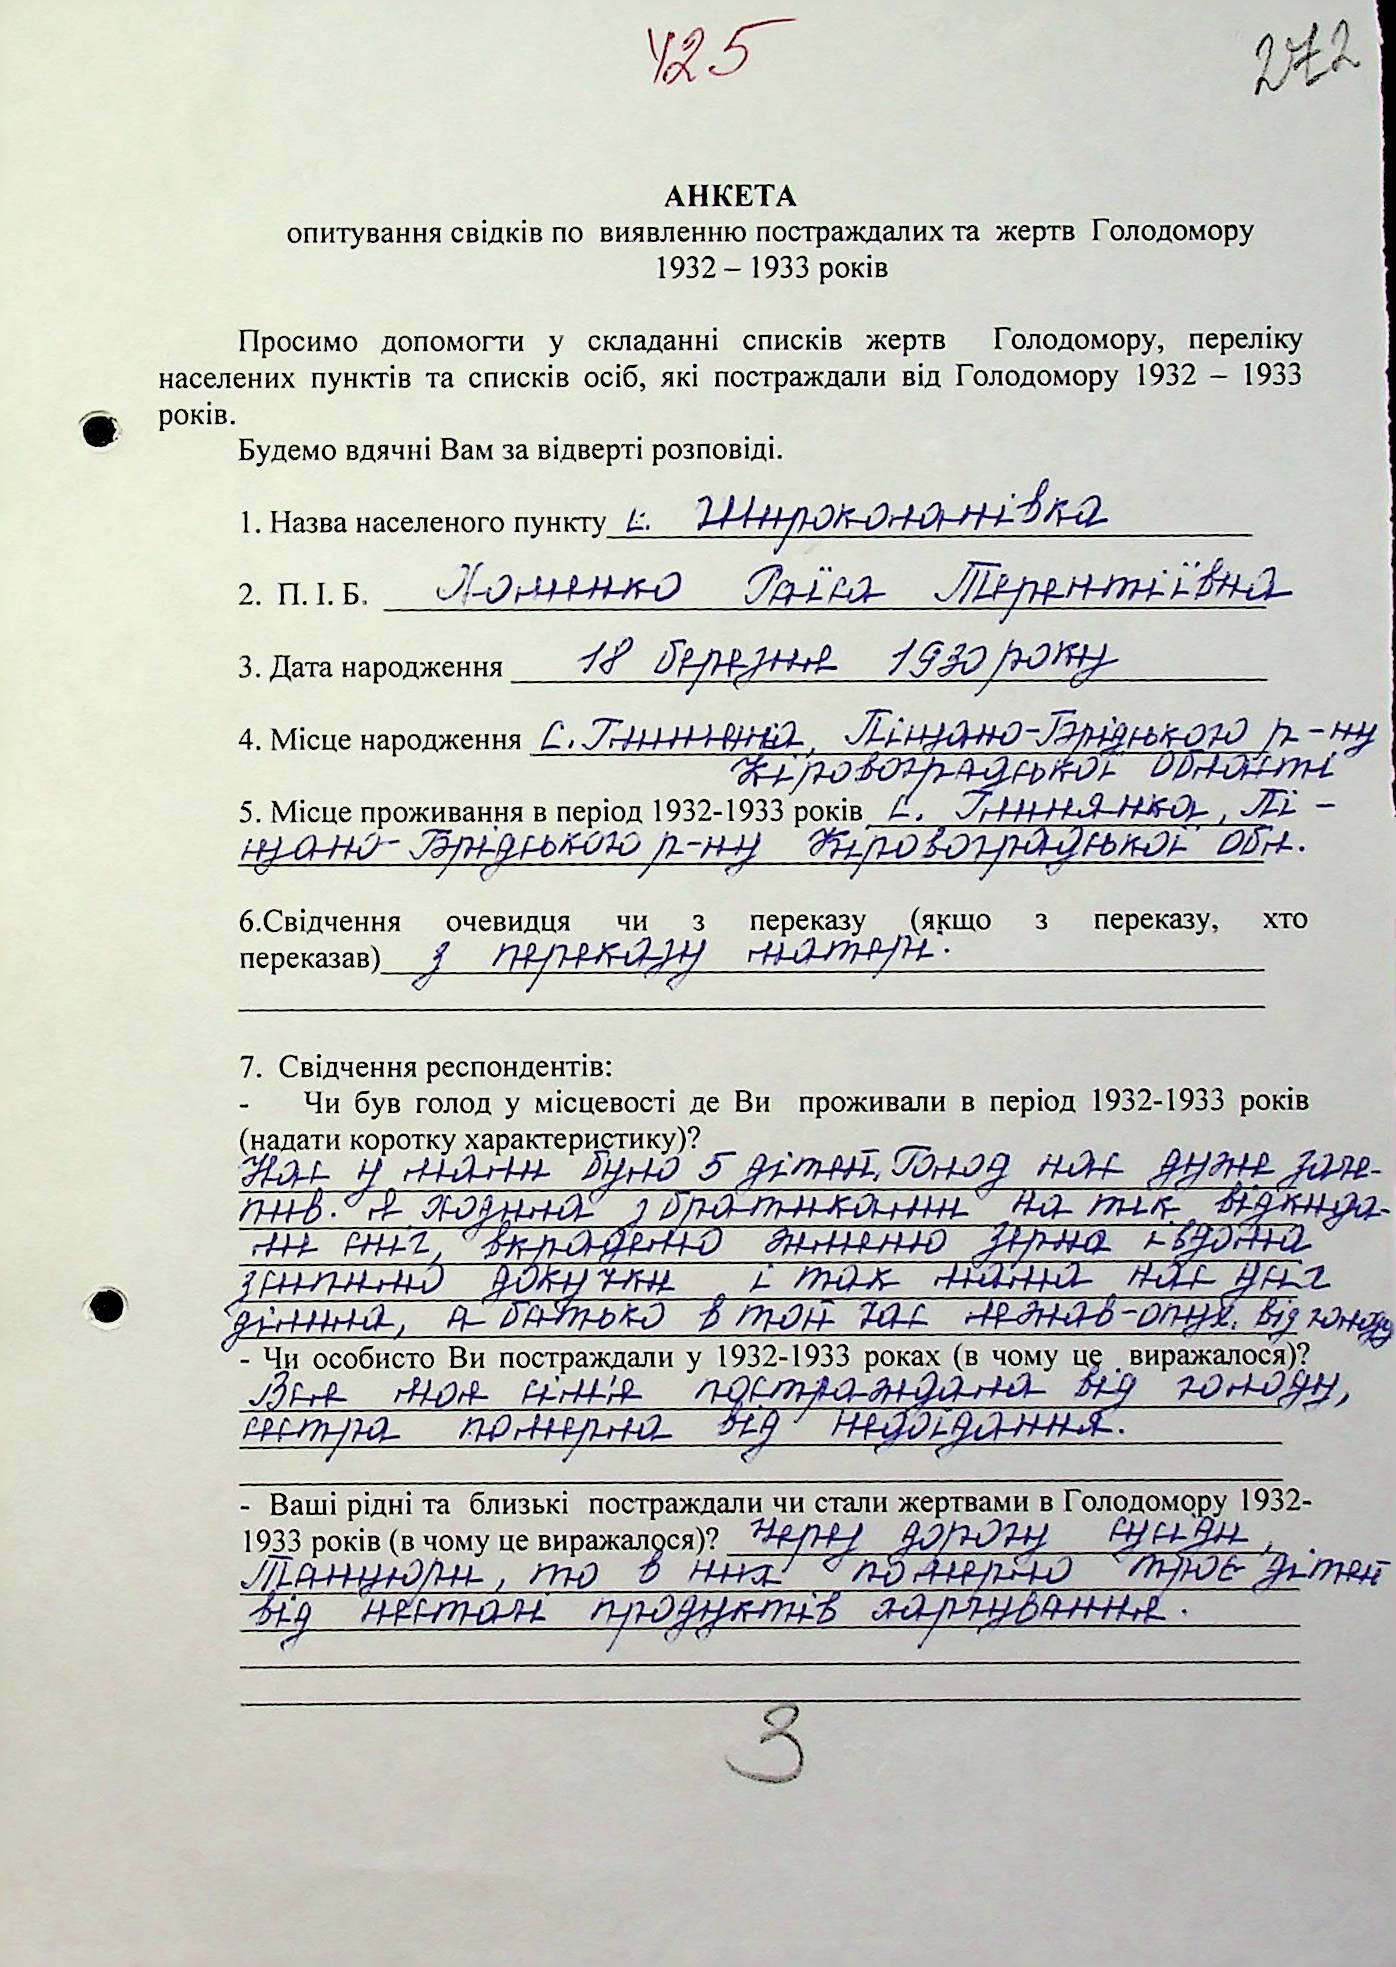 425
272
АНКЕТА
опитування свідків по виявленню постраждалих та жертв Голодомору
1932 – 1933 років
Просимо допомогти у складанні списків жертв Голодомору, переліку
населених пунктів та списків осіб, які постраждали від Голодомору 1932 – 1933
років.
Будемо вдячні Вам за відверті розповіді.
1. Назва населеного пункту с. Широколанівка
2. П. І. Б. Хоменко Раїса Терентіївна
3. Дата народження 18 березня 1930 року
4. Місце народження с. Піщано-Брідського р-ну
Кіровоградської області
5. Місце проживання в період 1932-1933 років с. Глинянка, Пі-
щано-Брідського р-ну Кіровоградської обл.
6.Свідчення очевидця чи з переказу (якщо з переказу, хто
переказав) з переказу матері.
7. Свідчення респондентів:
- Чи був голод у місцевості де Ви проживали в період 1932-1933 років
(надати коротку характеристику)?
Нас у мами було 5 дітей. Голод нас дуже заче-
пив. Я ходила з братиками на тік відкида-
ли сніг, вкрадемо жменю зерна і вдома
зсипимо докучки і так мама нас усіх
ділила, а батько в той час лежав-опух. від голоду
- Чи особисто Ви постраждали у 1932-1933 роках (в чому це виражалося)?
Вся моя сім'я постраждала від голоду,
сестра померла від недоїдання.
- Ваші рідні та близькі постраждали чи стали жертвами в Голодомору 1932-
1933 років (в чому це виражалося)? Через дорогу сусіди,
Танцюри, то в них померло троє дітей
від нестачі продуктів харчування.
3